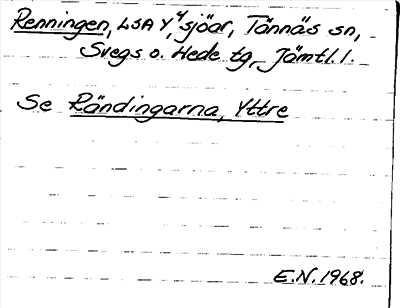 Renningen, LSA Y4, sjöar, Tännäs sn,
Svegs o. Hede tg, Jämtl. l.
Se Rändingarna, Yttre
E.N. 1968.